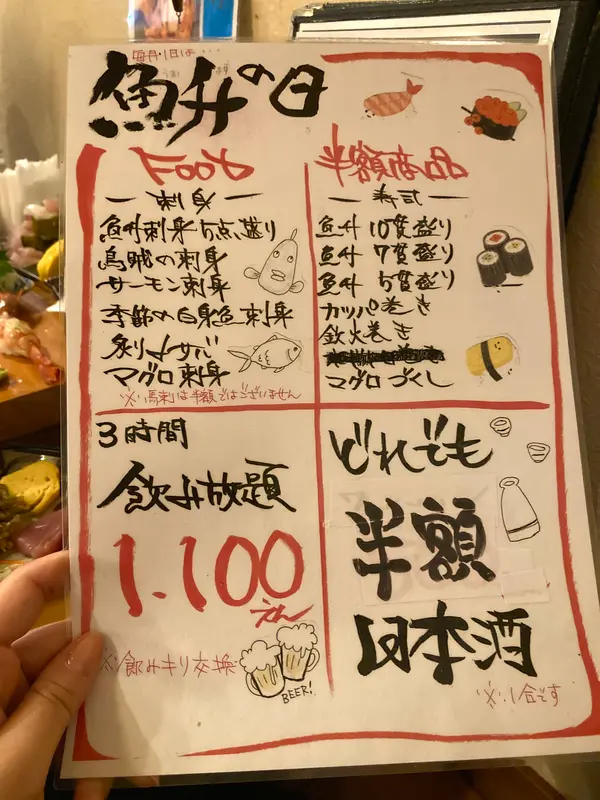 毎月・1日は・・・
魚升の日
FOOD
半額商品
ー 刺身 ー
魚升刺身5点盛り
烏賊の刺身
サーモン刺身
季節の白身魚刺身
炙りメサバ
マグロ刺身
※馬刺は半額ではございません
ー 寿司 ー
魚升 10貫盛り
魚升 7貫盛り
魚升 5貫盛り
カッパ巻き
鉄火巻き
マグロづくし
3時間
飲み放題
1.100
えん
※飲みキリ交換
BEER!
どれでも
半額
日本酒
※1合です